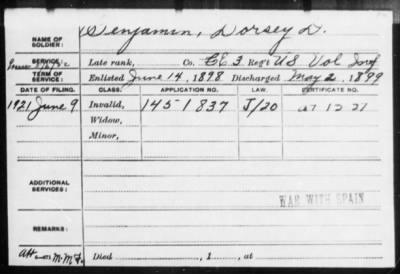 NAME OF SOLDIER: Benjamin, Dorsey D.
SERVICE: Late rank, Co. E 3 Reg't US Vol Inf
TERM OF SERVICE: Enlisted June 14, 1898 Discharged May 2, 1899
DATE OF FILING. CLASS. APPLICATION NO. LAW. CERTIFICATE NO.
1921 June 9 Invalid, 1451837 J/20
Widow,
Minor,
ADDITIONAL SERVICES:
WAR WITH SPAIN
REMARKS:
Died , 1 , at